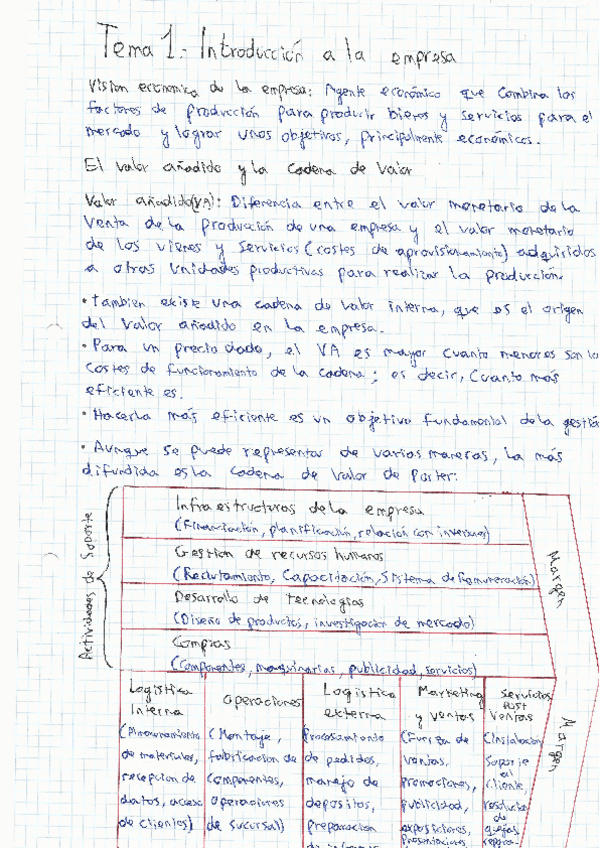 Tema 1.- Introducción a la empresa
Vision economica de la empresa: Agente económico que combina los
factores de producción para producir bienes y servicios para el
mercado y lograr unos objetivos, principalmente económicos.
El valor añadido y la cadena de valor
Valor añadido(VA): Diferencia entre el valor monetario de la
venta de la producción de una empresa y el valor monetario
de los vienes y servicios (costes de aprovisionamiento) adquiridos
a otras unidades productivas para realizar la producción.
• Tambien existe una cadena de valor interna, que es el origen
del valor añadido en la empresa.
• Para un precio dado, el VA es mayor cuanto menores son los
costes de funcionamiento de la cadena; es decir, cuanto más
eficiente es.
• Hacerla más eficiente es un objetivo fundamental de la gestión
• Aunque se puede representar de varias maneras, la más
difundida es la cadena de valor de Porter:
Actividades de Soporte
Infraestructuras de la empresa
(Financiación, planificación, relación con inversores)
Gestión de recursos humanos
(Reclutamiento, Capacitación, Sistema de Remuneración)
Desarrollo de tecnologías
(Diseño de productos, investigación de mercado)
Compras
(Componentes, maquinarias, publicidad, servicios)
Margen
Logística
Interna
(Almacenamiento
de materiales,
recepcion de
datos, acceso
de clientes)
Operaciones
(Montaje,
fabricacion de
componentes,
operaciones
de sucursal)
Logistica
externa
(Procesamiento
de pedidos,
manejo de
depositos,
preparación
de informes
Marketing
y ventas
(Fuerza de
ventas,
promociones,
publicidad,
exposiciones,
Presentaciones
Servicios
Post
Ventas
(Instalación
Soporte
al
cliente,
resolución
de
quejas
Margen